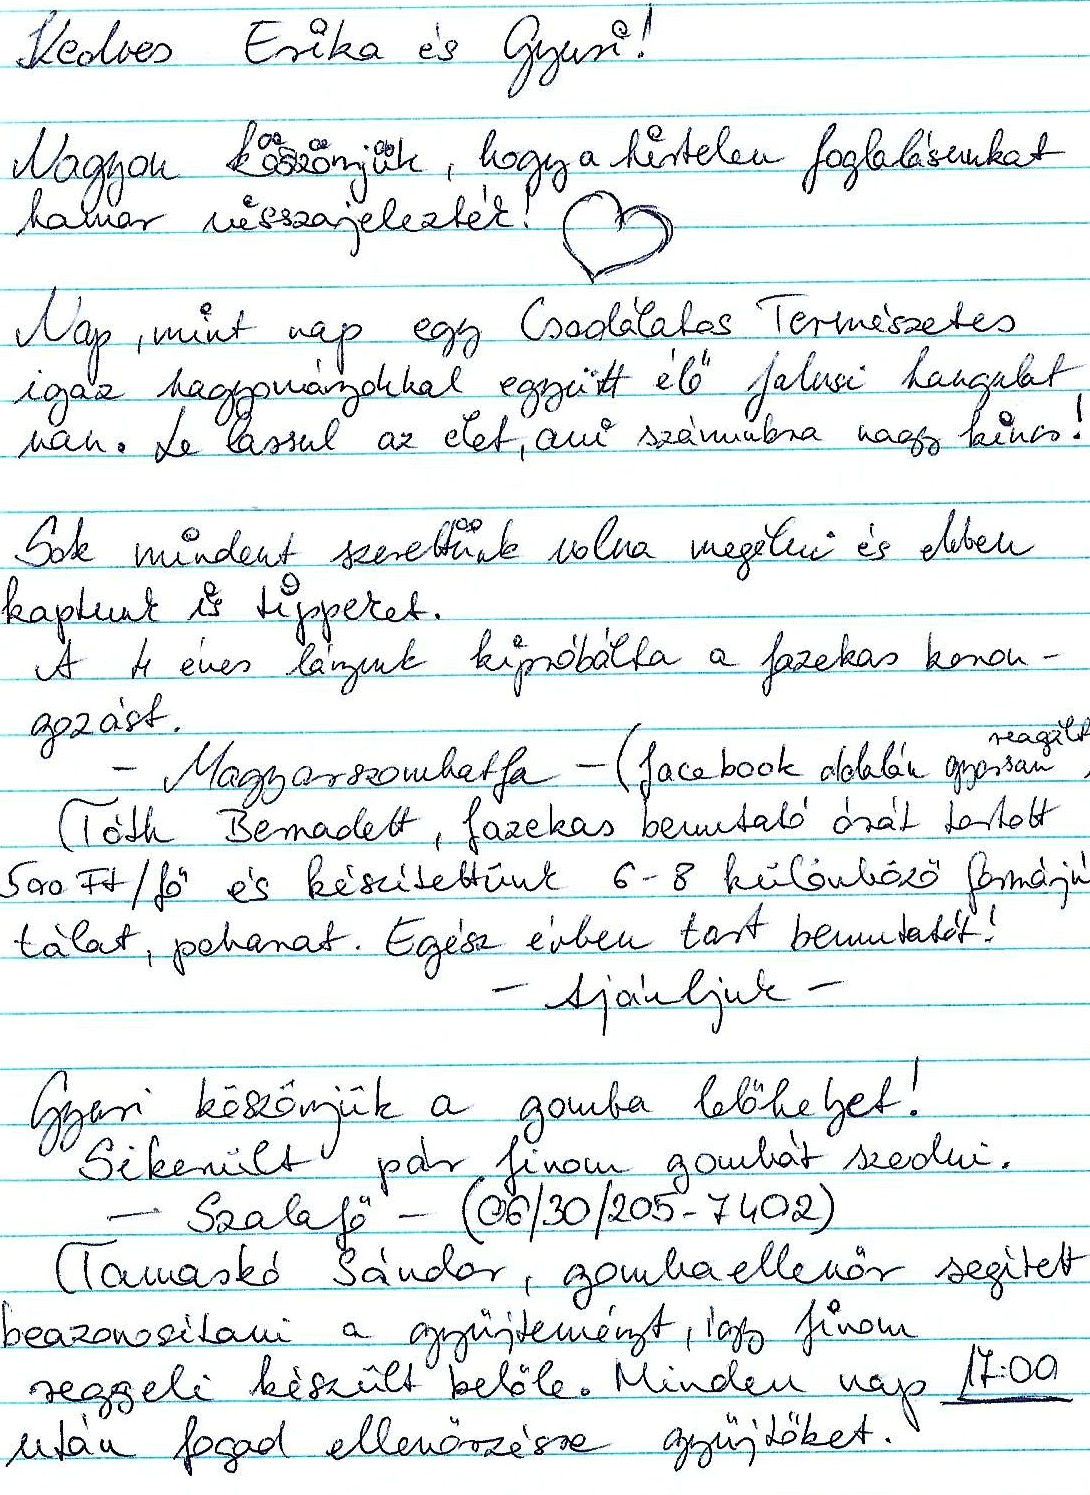 Kedves Erika és Gyuri!
Nagyon köszönjük, hogy a hirtelen foglalásunkat
hamar visszajelezték!
Nap, mint nap egy Csodálatos Természetes
igaz hagyományokkal együtt élő falusi hangulat
van. Le lassul az élet, ami számunkra nagy kincs!
Sok mindent szerettünk volna megélni és ebben
kaptunk is tippeket.
A 4 éves lányunk kipróbálta a fazekas koron-
gozást.
- Magyarszombatfa - (facebook oldalán gyorsan reagált,
(Tóth Bernadett, fazekas bemutató órát tartott
500 Ft/fő és készítettünk 6-8 különböző formájú
tálat, poharat. Egész évben tart bemutatót!
- Ajánljuk -
Gyuri köszönjük a gomba lelőhelyet!
Sikerült pár finom gombát szedni.
- Szalafő - (06/30/205-7402)
(Tamaskó Sándor, gombaellenőr segített
beazonosítani a gyűjteményt, így finom
reggeli készült belőle. Minden nap 17:00
után fogad ellenőrzésre gyűjtőket.